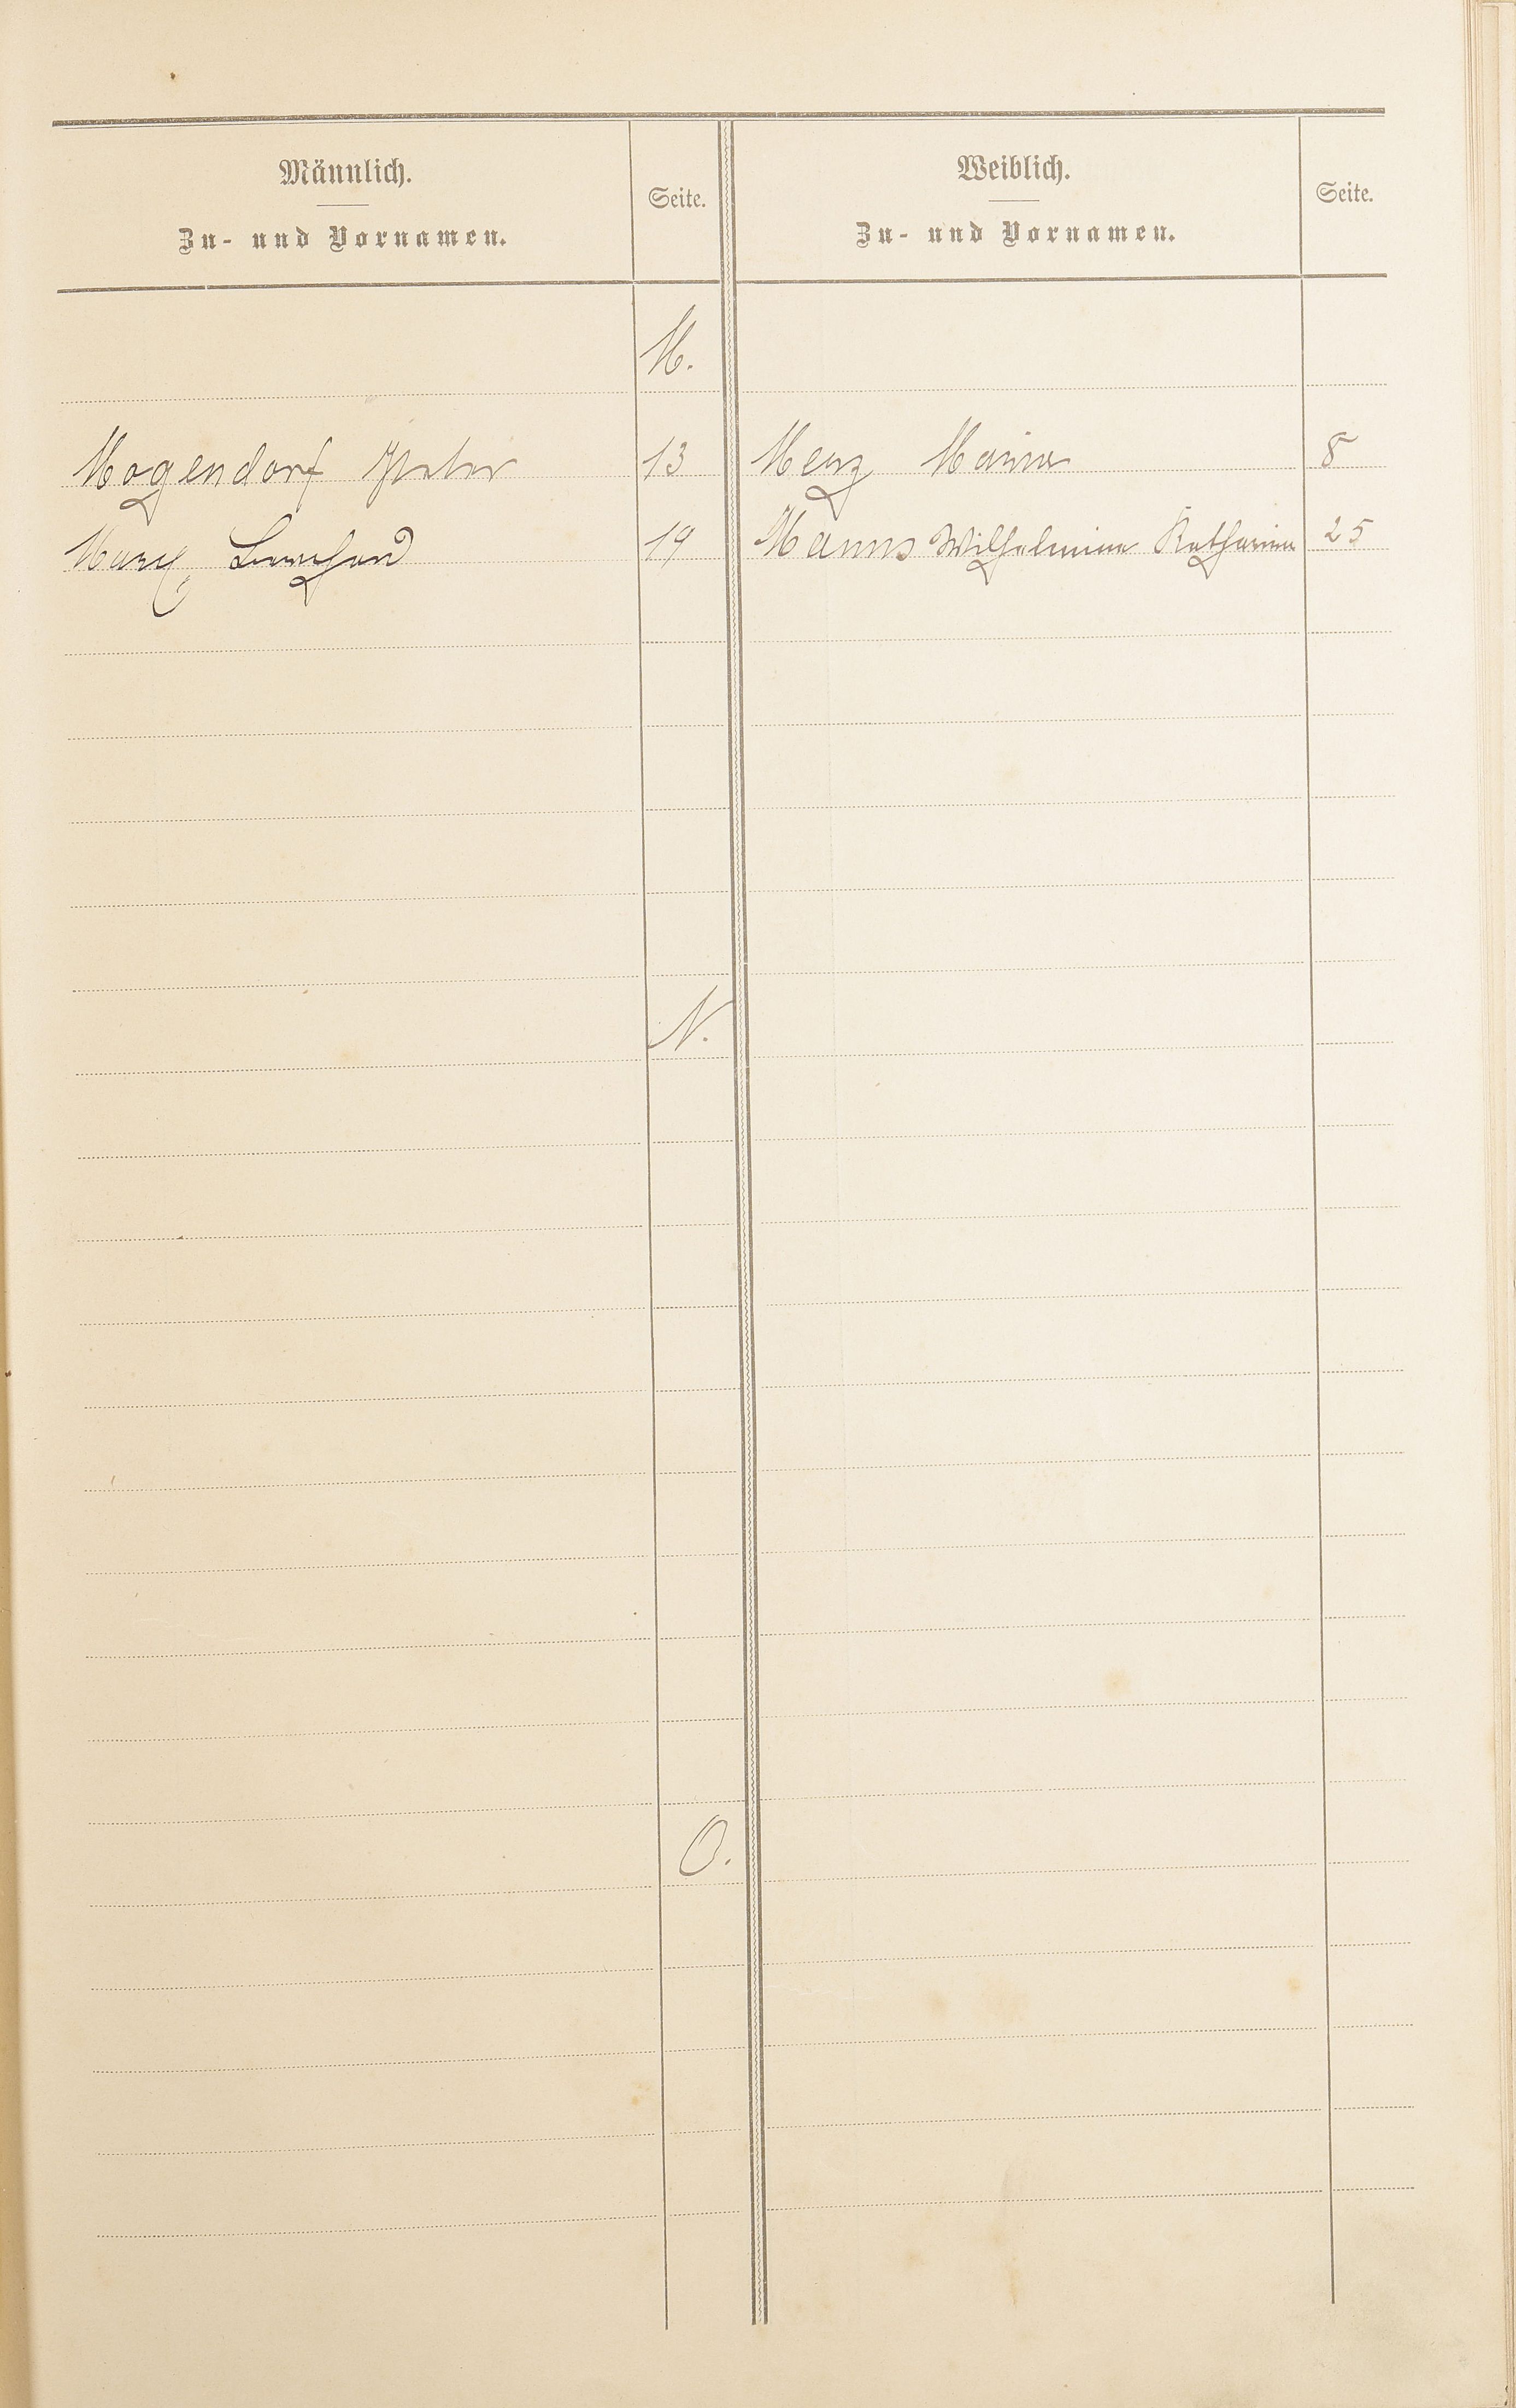 Männlich.
Zu- und Vornamen.
Seite.
Weiblich.
Zu- und Vornamen.
Seite.
M.
Mogendorf Peter 13 Merz Maria 8
19 Manns Wilhelmine Katharina 25
N.
O.